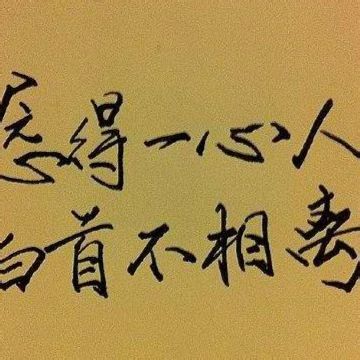 愿得一心人
白首不相离